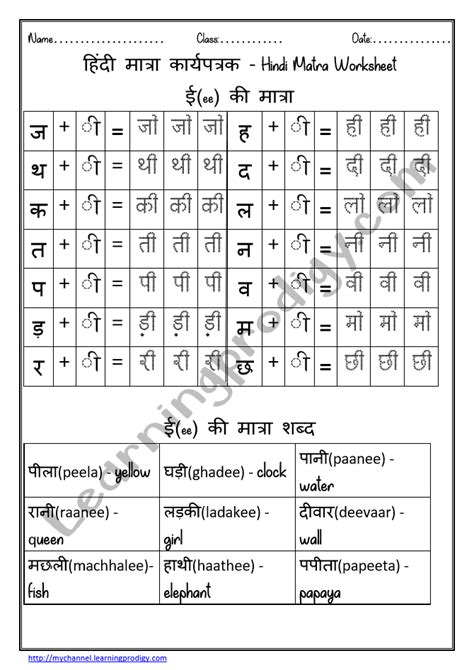 Name...................... Class:............... Date:...................
हिंदी मात्रा कार्यपत्रक - Hindi Matra Worksheet
ई(ee) की मात्रा
ज + ी = जो जो जो ह + ी = ही ही ही
थ + ी = थी थी थी द + ी = दी दी दी
क + ी = की की की ल + ी = लो लो लो
त + ी = ती ती ती न + ी = नी नी नी
प + ी = पी पी पी व + ी = वी वी वी
ड़ + ी = ड़ी ड़ी ड़ी म + ी = मो मो मो
र + ी = री री री छ + ी = छी छी छी
ई(ee) की मात्रा शब्द
पीला(peela) - yellow घड़ी(ghadee) - clock पानी(paanee) -
water
रानी(raanee) - लड़की(ladakee) - दीवार(deevaar) -
queen girl wall
मछली(machhalee)- हाथी(haathee) - पपीता(papeeta) -
fish elephant papaya
Learningprodigy.com
http://mychannel.learningprodigy.com